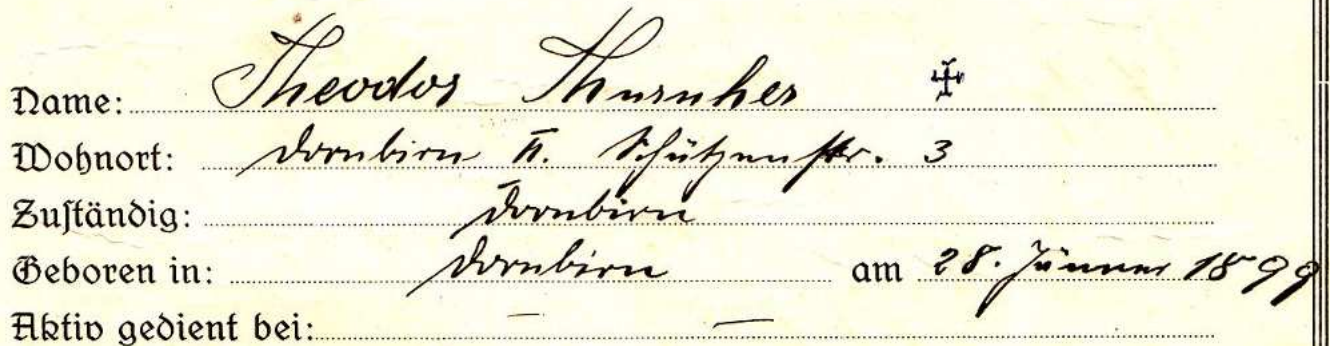 Name: Theodor Thurnher
Wohnort: Dornbirn II. Schützenstr. 3
Zuständig: Dornbirn
Geboren in: Dornbirn am 28. Jänner 1899
Aktiv gedient bei: — —